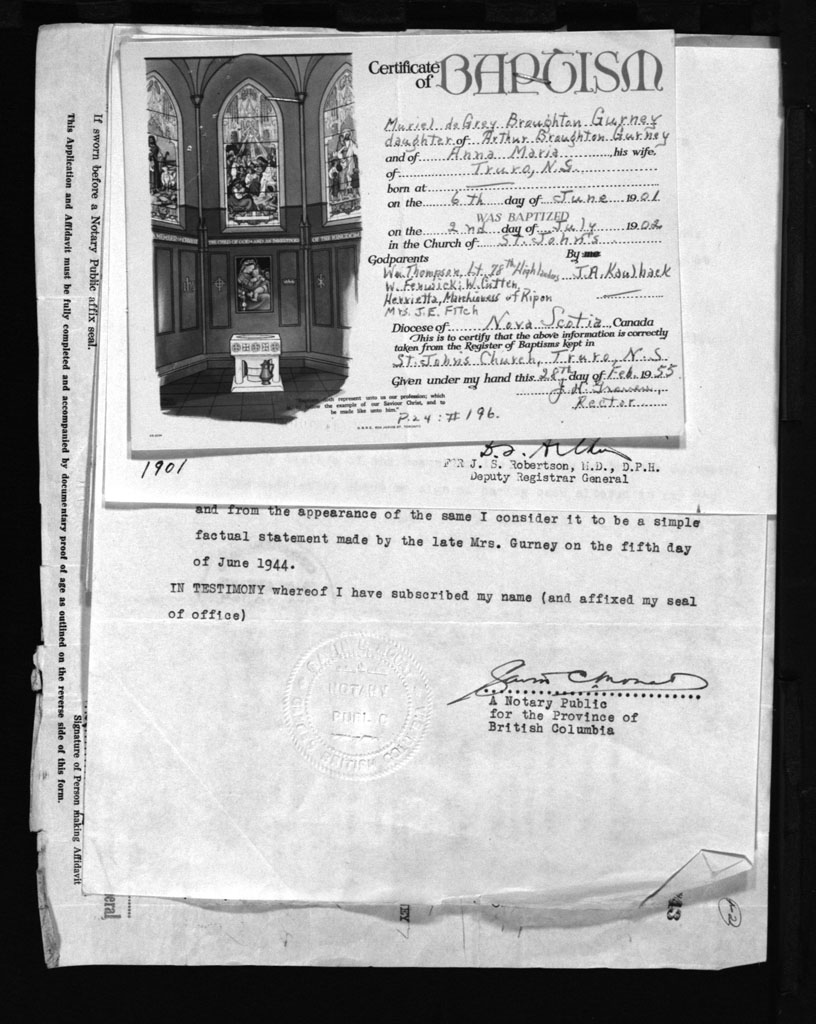 Certificate
of BAPTISM
Muriel deGrey Broughton Gurney
daughter of Arthur Broughton Gurney
and of Anna Maria, his wife,
of Truro, N.S.
born at
on the 6th day of June 1901
WAS BAPTIZED
on the 2nd day of July 1902
in the Church of St. John's
Godparents By me
Wm. Thompson, Lt. 78th Highlanders J.A. Kaulback
W. Fenwick; W. Cutten
Henrietta, Marchioness of Ripon
Mrs. J.E. Fitch
Diocese of Nova Scotia, Canada
This is to certify that the above information is correctly
taken from the Register of Baptisms kept in
St. John's Church, Truro, N.S.
Given under my hand this 28th day of Feb. 1955
Rector
represent unto us our profession; which
the example of our Saviour Christ, and to
be made like unto him."
P.24: # 196.
THE CHILD OF GOD AND AN INHERITOR OF THE KINGDOM
1901
FOR J. S. Robertson, M.D., D.P.H.
Deputy Registrar General
and from the appearance of the same I consider it to be a simple
factual statement made by the late Mrs. Gurney on the fifth day
of June 1944.
IN TESTIMONY whereof I have subscribed my name (and affixed my seal
of office)
NOTARY
PUBLIC
BRITISH COLUMBIA
A Notary Public
for the Province of
British Columbia
If sworn before a Notary Public affix seal.
This Application and Affidavit must be fully completed and accompanied by documentary proof of age as outlined on the reverse side of this form.
Signature of Person making Affidavit
eral
EY 7